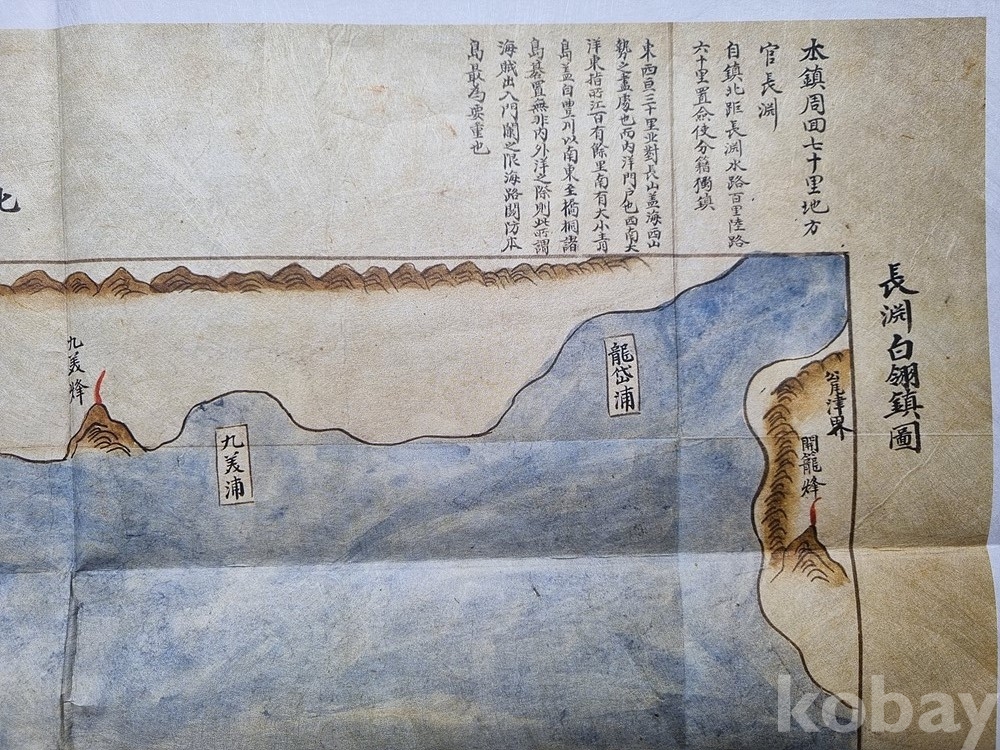 長淵白翎鎭圖
本鎭周回七十里地方
官長淵
自鎭北距長淵水路百里陸路
六十里置僉使分籍獨鎭
東西亘三十里並對長山盖海西山
勢之盡處也而內洋門戶也西南大
洋東指內江百有餘里南有大小青
島盖自豊川以南東至橋桐諸
島碁置無非內外洋之際則此所謂
海賊出入門闌之限海路関防本
島最為要重也
北
龍岱浦
九美烽
九美浦
界
開籠烽
kobay